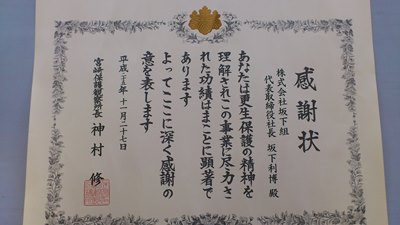 感謝状
株式会社坂下組
代表取締役社長 坂下利博 殿
あなたは更生保護の精神を
理解されこの事業に尽力さ
れた功績はまことに顕著で
あります
よってここに深く感謝の
意を表します
平成二十五年十一月二十七日
宮崎保護観察所長 神村 修